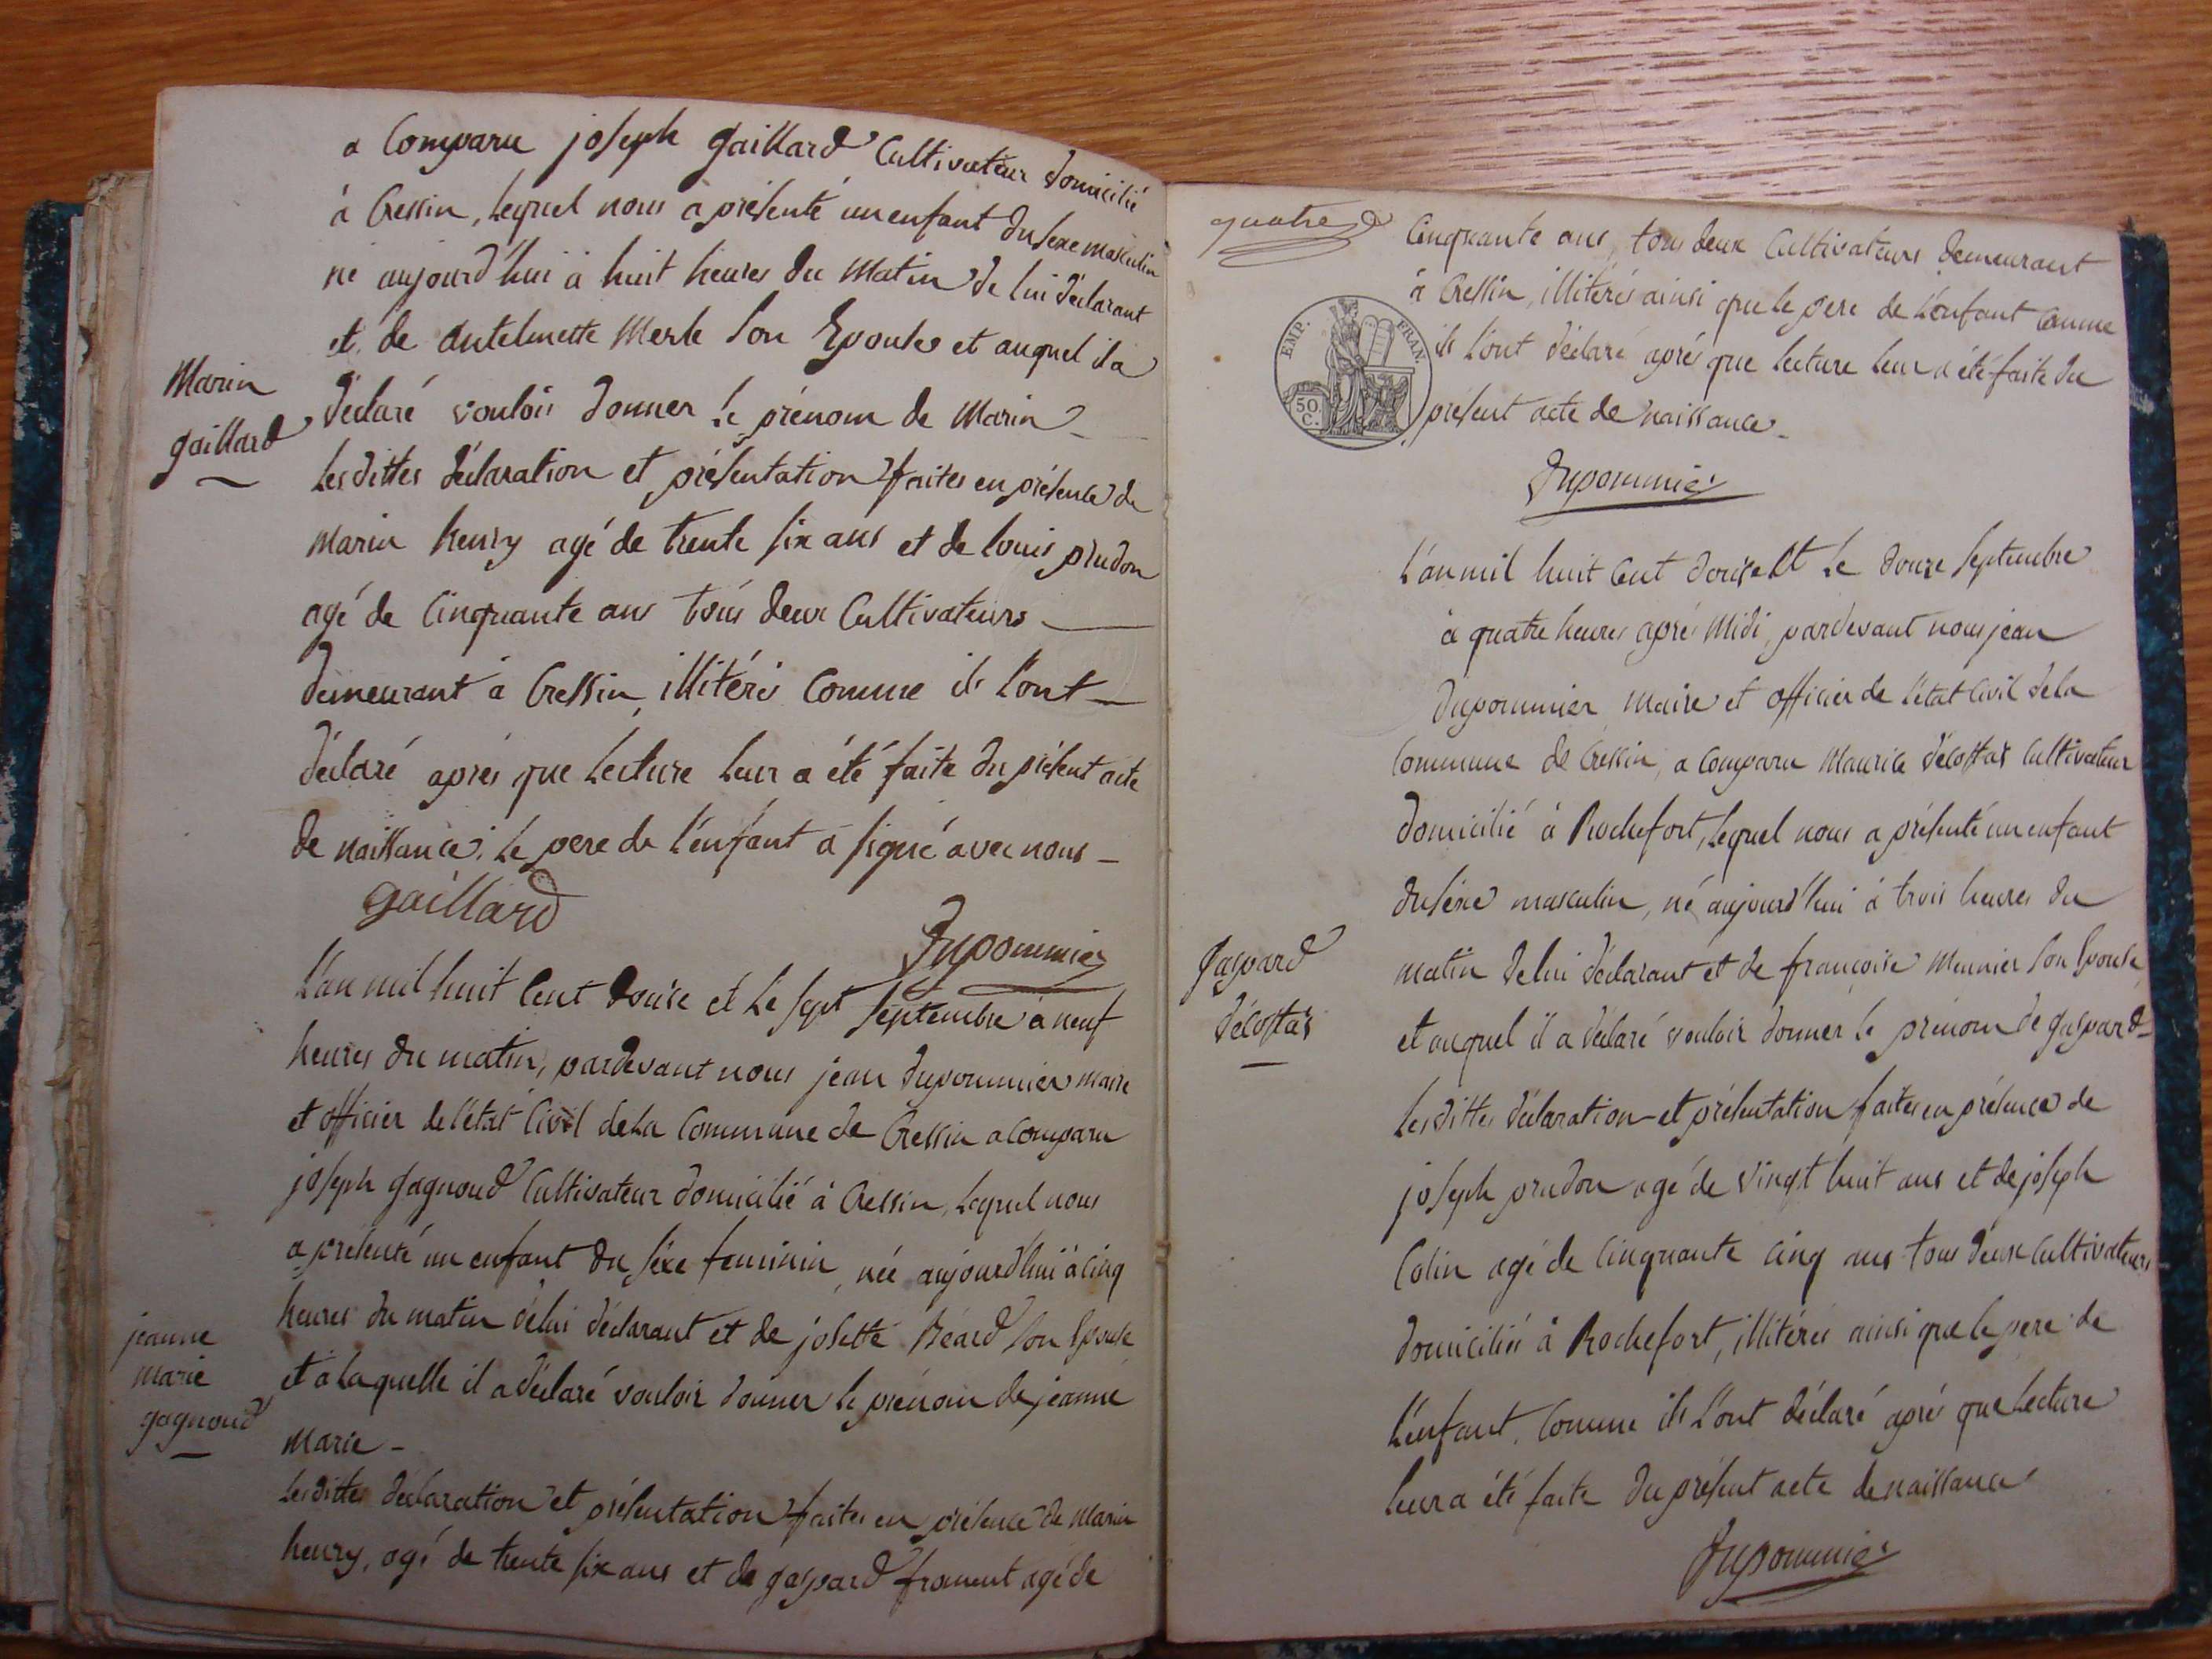 a Comparu joseph gaillard Cultivateur domicilié
à Cressin, lequel nous a présenté un enfant du sexe masculin
né aujourd'hui à huit heures du matin de lui déclarant
et de antelmette Merle son Epouse et auquel il a
Marin
gaillard
déclaré vouloir donner le prénom de Marin
les dittes déclaration et présentation faites en présence de
Marin henry agé de trente six ans et de louis prudon
agé de Cinquante ans tous deux Cultivateurs
demeurant à Cressin, illitérés Comme ils l'ont
déclaré après que lecture leur a été faite du présent acte
de naissance. le pere de l'enfant a signé avec nous
gaillard
Dupommier
L'an mil huit Cent douze et le sept septembre à neuf
heures du matin, pardevant nous jean dupommier maire
et officier de l'état Civil de la Commune de Cressin a comparu
joseph gagnoud Cultivateur domicilié à Cressin, lequel nous
a présenté un enfant du séxe feminin, née aujourd'hui à cinq
heures du matin de lui déclarant et de josette Béard son Epouse
et à laquelle il a déclaré vouloir donner le prénom de jeanne
jeanne
marie
gagnoud
marie
les dittes déclaration et présentation faites en présence de Marin
henry, agé de trente six ans et de gaspard froment agé de
quatre
Cinquante ans, tous deux Cultivateurs demeurant
à Cressin, illitérés ainsi que le pere de l'enfant comme
ils l'ont déclaré après que lecture leur a été faite du
présent acte de naissance
EMP. FRAN.
50.
C.
Dupommier
L'an mil huit Cent douze et le douze septembre
à quatre heures après Midi, pardevant nous jean
dupommier maire et officier de l'état Civil de la
Commune de Cressin, a comparu Maurice décostas Cultivateur
domicilié à Rochefort, lequel nous a présenté un enfant
du séxe masculin, né aujourd'hui à trois heures du
matin de lui déclarant et de françoise Meunier son Epouse
gaspard
décostas
et auquel il a déclaré vouloir donner le prénom de gaspard
les dittes déclaration et présentation faites en présence de
joseph prudon agé de vingt huit ans et de joseph
Colin agé de Cinquante cinq ans tous deux Cultivateurs
domiciliés à Rochefort, illitérés ainsi que le pere de
l'enfant, Comme ils l'ont déclaré après que lecture
leur a été faite du présent acte de naissance
Dupommier